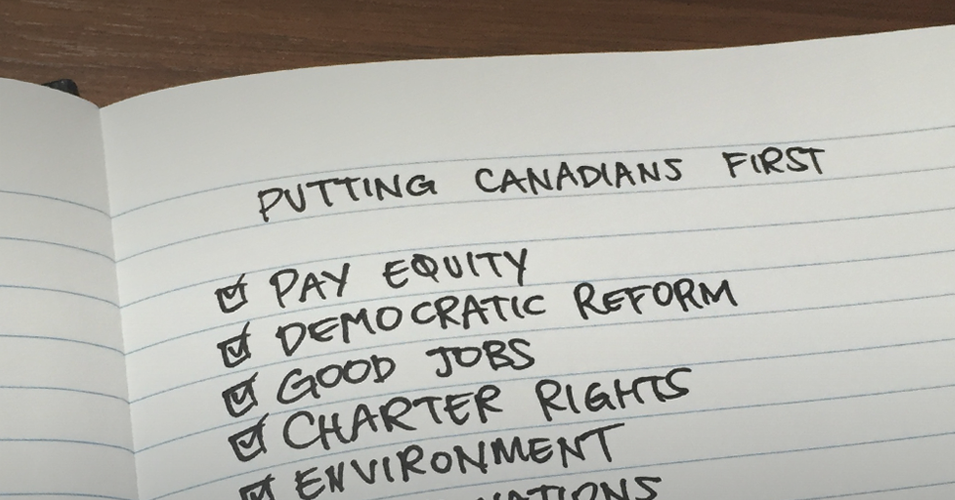 PUTTING CANADIANS FIRST
PAY EQUITY
DEMOCRATIC REFORM
GOOD JOBS
CHARTER RIGHTS
ENVIRONMENT